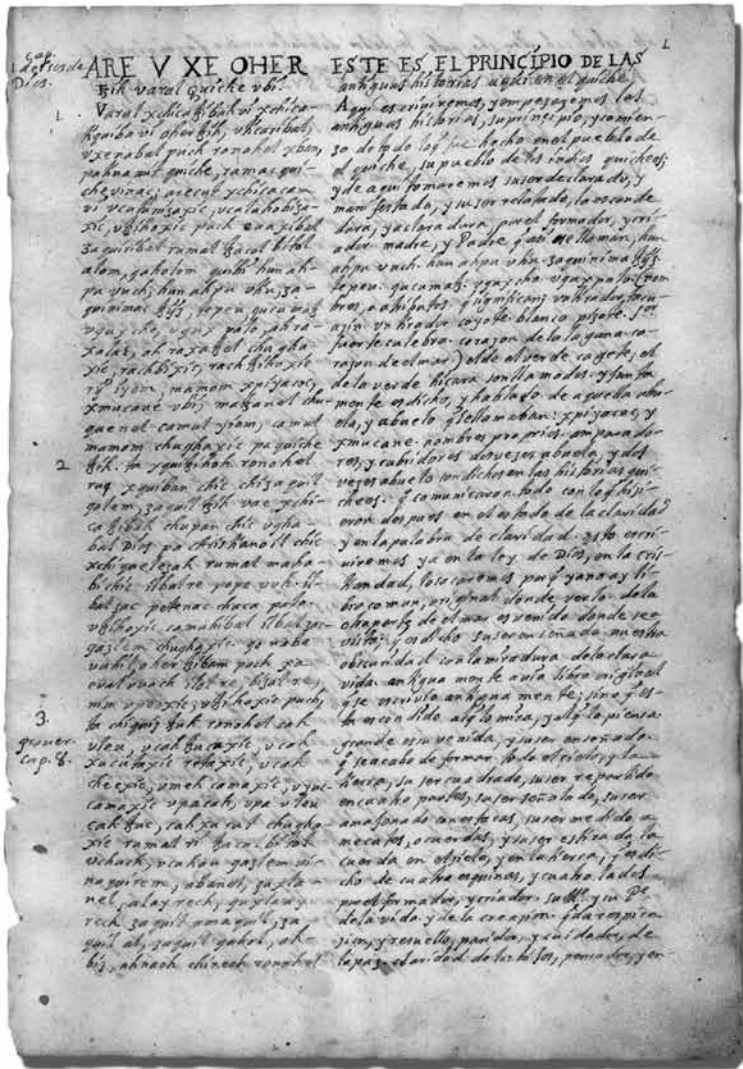 1
ARE V XE OHER
tzih varal Quiche ubi.
Varal xchicatzibah vi xchica-
tiquiba vi oher tzih, uticaribal,
uxenabal puch ronohel xban
pa tinamit quiche, ramac qui-
che vinac; arecut xchicacam
vi ucutunizaxic, ucalahobiza-
xic, utzihoxic puch euaxibal
zaquiribal rumal tzacol bitol
alom, qaholom quibi hun ah-
pu vuch; hun ahpu utiu, za-
quinimac tzyz, tepeu gucumatz
uqux cho, uqux palo, ah ra-
xalaq, ah raxatzel chugha-
xic, rachbixic, rachtzihoxic
ry iyom, mamom xpiyacoc,
xmucane ubi; matzanel chu-
quenel camul iyom, camul
mamom chughaxic pa quiche
2
tzih. ta xquitzihoh ronohel
ruq xquiban chic chi zaquil
qolem, zaquil tzih vae xchi-
catzibah chupan chic ugha-
bal Dios pa christianoil chic
xchiquelezah rumal maha-
bi chic ilbal re popo vuh, il-
bal zac petenac chaca palo
utzihoxic camuhibal ilbal zac
qazlem chughaxic. qo nabe
vuhil oher tzibam puch xa
eval uvach ilol re, bizol re,
nim upeoxic, utzihoxic puch,
3.
prover.
cap. 8.
ta chiquiz tzuk ronohel cah
uleu, ucah tzucuxic, ucah
xucutaxic retaxic, ucah
cheexic, umeh camaxic, uyuc
camaxic upa cah, upa uleu
cah tzuc, cah xucut chugha-
xic rumal ri tzacol bitol
uchuch, ucahau qazlem vi-
naquirem, abanel, quxla-
nel, alay rech, quxlaay
rech zaquil amaquil, za-
quil al, zaquil qahol, ah
biz, ahnaoh chirech ronohel
ESTE ES EL PRINCIPIO DE LAS
antiguas historias aqui en el quiche
Aqui escriviremos, y empesaremos las
antiguas historias, su principio, y comien-
zo de todo lo q̃ fue hecho en el pueblo de
el quiche, su pueblo de los indios quichees;
y de aqui tomaremos su ser declarado, y
manifestado, y su ser relatado, la esconde
dura, y aclaradura, por el formador, y cri-
ador madre, y Padre q̃ asi se llaman, hun
ahpu vuch. hun ahpu utiu. zaquinimatzyz.
tepeu. qucumatz. uqux cho. uqux palo. (nom
bres, o atributos. q̃ significan; vn tirador tacu-
azin vn tirador coyote. blanco pizote. Sor
fuerte culebra. corazon de la laguna. co-
razon de el mar) el de el verde cagete, el
de la verde hicara son llamados. y junta
mente es dicho, y hablado de aquella abu
ela, y abuelo q̃ se llamaban: xpiyacoc, y
xmucane. nombres proprios. amparado-
res, y cubridores dos veses abuela, y dos
vezes abuelo son dichos en las historias qui-
cheas. q̃ comunicaron todo con lo q̃ hizi-
eron despues en el estado de la claridad
y en la palabra de claridad. esto escri-
viremos ya en la ley de Dios, en la cris-
tiandad, lo sacaremos porq̃ ya no ay li-
bro comun, original donde verlo. de la
otra parte de el mar es venido donde sea
visto; y es dicho su ser enseñado nuestra
obscuridad con la miradura de la clara
vida. antigua mente avia libro original
q̃ se escrivio antigua mente; sino q̃ es-
ta escondido al q̃ lo mira, y al q̃ lo piensa.
grande es su venida, y su ser enseñado.
q̃ se acabo de formar, todo el cielo, y la
tierra, su ser cuadrado, su ser repartido
en cuatro partes, su ser señalado, su ser
amojonado con estacas, su ser medido a
mecates, o cuerdas, y su ser estirada la
cuerda en el cielo, y en la tierra; q̃ es di-
cho de cuatro esquinas, y cuatro lados
por el formador, y criador. su Me. y su Pe.
de la vida. y de la creazion. q̃ da respira
zion, y resuello, paridor, y cuidador, de
la paz. claridad de los hijos, pensador, y en